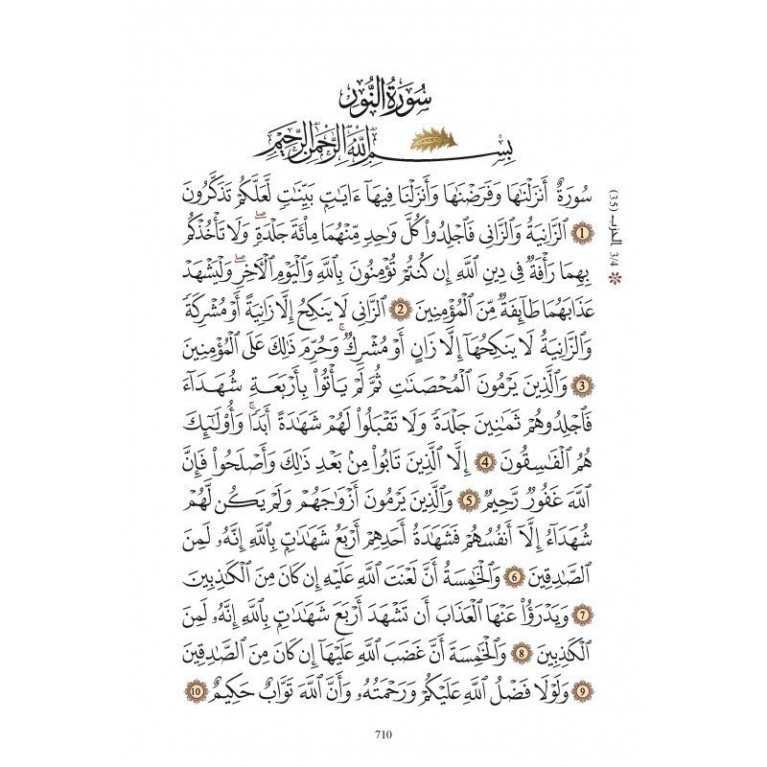 سُورَةُ النُّورِ
بِسْمِ ٱللَّهِ ٱلرَّحْمَٰنِ ٱلرَّحِيمِ
سُورَةٌ أَنزَلْنَٰهَا وَفَرَضْنَٰهَا وَأَنزَلْنَا فِيهَآ ءَايَٰتٍۭ بَيِّنَٰتٍ لَّعَلَّكُمْ تَذَكَّرُونَ
1 ٱلزَّانِيَةُ وَٱلزَّانِى فَٱجْلِدُوا۟ كُلَّ وَٰحِدٍ مِّنْهُمَا مِا۟ئَةَ جَلْدَةٍۖ وَلَا تَأْخُذْكُم
بِهِمَا رَأْفَةٌ فِى دِينِ ٱللَّهِ إِن كُنتُمْ تُؤْمِنُونَ بِٱللَّهِ وَٱلْيَوْمِ ٱلْأَخِرِۖ وَلْيَشْهَدْ
عَذَابَهُمَا طَآئِفَةٌ مِّنَ ٱلْمُؤْمِنِينَ 2 ٱلزَّانِى لَا يَنكِحُ إِلَّا زَانِيَةً أَوْ مُشْرِكَةً
وَٱلزَّانِيَةُ لَا يَنكِحُهَآ إِلَّا زَانٍ أَوْ مُشْرِكٌۚ وَحُرِّمَ ذَٰلِكَ عَلَى ٱلْمُؤْمِنِينَ
3 وَٱلَّذِينَ يَرْمُونَ ٱلْمُحْصَنَٰتِ ثُمَّ لَمْ يَأْتُوا۟ بِأَرْبَعَةِ شُهَدَآءَ
فَٱجْلِدُوهُمْ ثَمَٰنِينَ جَلْدَةً وَلَا تَقْبَلُوا۟ لَهُمْ شَهَٰدَةً أَبَدًاۚ وَأُو۟لَٰٓئِكَ
هُمُ ٱلْفَٰسِقُونَ 4 إِلَّا ٱلَّذِينَ تَابُوا۟ مِنۢ بَعْدِ ذَٰلِكَ وَأَصْلَحُوا۟ فَإِنَّ
ٱللَّهَ غَفُورٌ رَّحِيمٌ 5 وَٱلَّذِينَ يَرْمُونَ أَزْوَٰجَهُمْ وَلَمْ يَكُن لَّهُمْ
شُهَدَآءُ إِلَّآ أَنفُسُهُمْ فَشَهَٰدَةُ أَحَدِهِمْ أَرْبَعُ شَهَٰدَٰتٍۭ بِٱللَّهِ إِنَّهُۥ لَمِنَ
ٱلصَّٰدِقِينَ 6 وَٱلْخَٰمِسَةُ أَنَّ لَعْنَتَ ٱللَّهِ عَلَيْهِ إِن كَانَ مِنَ ٱلْكَٰذِبِينَ
7 وَيَدْرَؤُا۟ عَنْهَا ٱلْعَذَابَ أَن تَشْهَدَ أَرْبَعَ شَهَٰدَٰتٍۭ بِٱللَّهِ إِنَّهُۥ لَمِنَ
ٱلْكَٰذِبِينَ 8 وَٱلْخَٰمِسَةَ أَنَّ غَضَبَ ٱللَّهِ عَلَيْهَآ إِن كَانَ مِنَ ٱلصَّٰدِقِينَ
9 وَلَوْلَا فَضْلُ ٱللَّهِ عَلَيْكُمْ وَرَحْمَتُهُۥ وَأَنَّ ٱللَّهَ تَوَّابٌ حَكِيمٌ 10
3/4 الحزب (35)
710